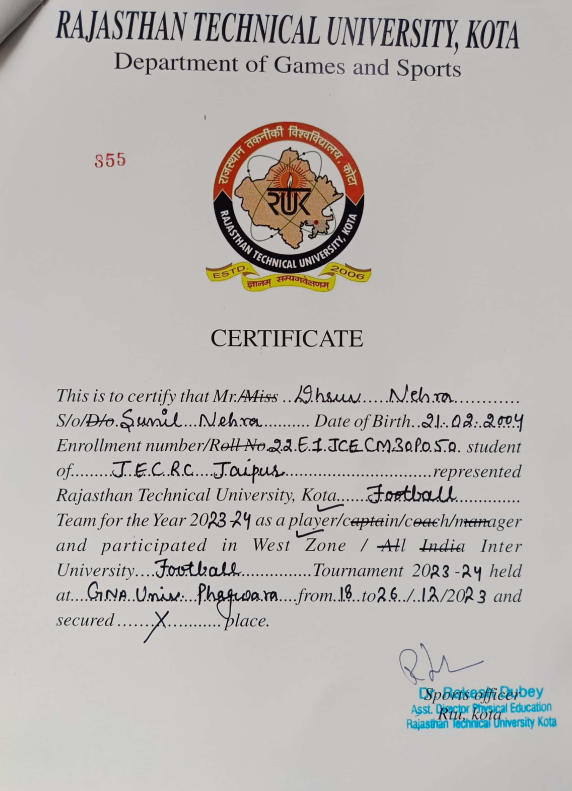 RAJASTHAN TECHNICAL UNIVERSITY, KOTA
Department of Games and Sports
355
राजस्थान तकनीकी विश्वविद्यालय, कोटा
RTU
RAJASTHAN TECHNICAL UNIVERSITY, KOTA
ESTD. 2006
ज्ञानम् सम्यगवेक्षणम्
CERTIFICATE
This is to certify that Mr./Miss .. Nehra............
S/o/D/o.Sunil...Nehra.......... Date of Birth..21..02..2004
Enrollment number/Roll No. student
of........J.E.C.R.C....Jaipur.................................represented
Rajasthan Technical University, Kota......Football..............
Team for the Year 2023-24 as a player/captain/coach/manager
and participated in West Zone / All India Inter
University....Football...............Tournament 2023-24 held
at...GNA..Univ...Phagwara....from.18..to26../..12/2023 and
secured .......X........... place.
Sports officer
Dr. Rakesh Dubey
Asst. Director Physical Education
Rtu, kota
Rajasthan Technical University Kota